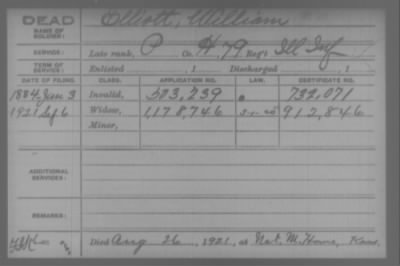 DEAD
Elliott, William
NAME OF SOLDIER:
SERVICE: Late rank, P Co. H 79 Reg't Ill Inf
TERM OF SERVICE: Enlisted , 1 Discharged , 1
DATE OF FILING. CLASS. APPLICATION NO. LAW. CERTIFICATE NO.
1884 Jan 3 Invalid, 503,239 732,071
1921 Sep 6 Widow, 1,178,746 912,846
Minor,
ADDITIONAL SERVICES:
REMARKS:
Died Aug 26, 1921, at Nat. M. Home, Kans.